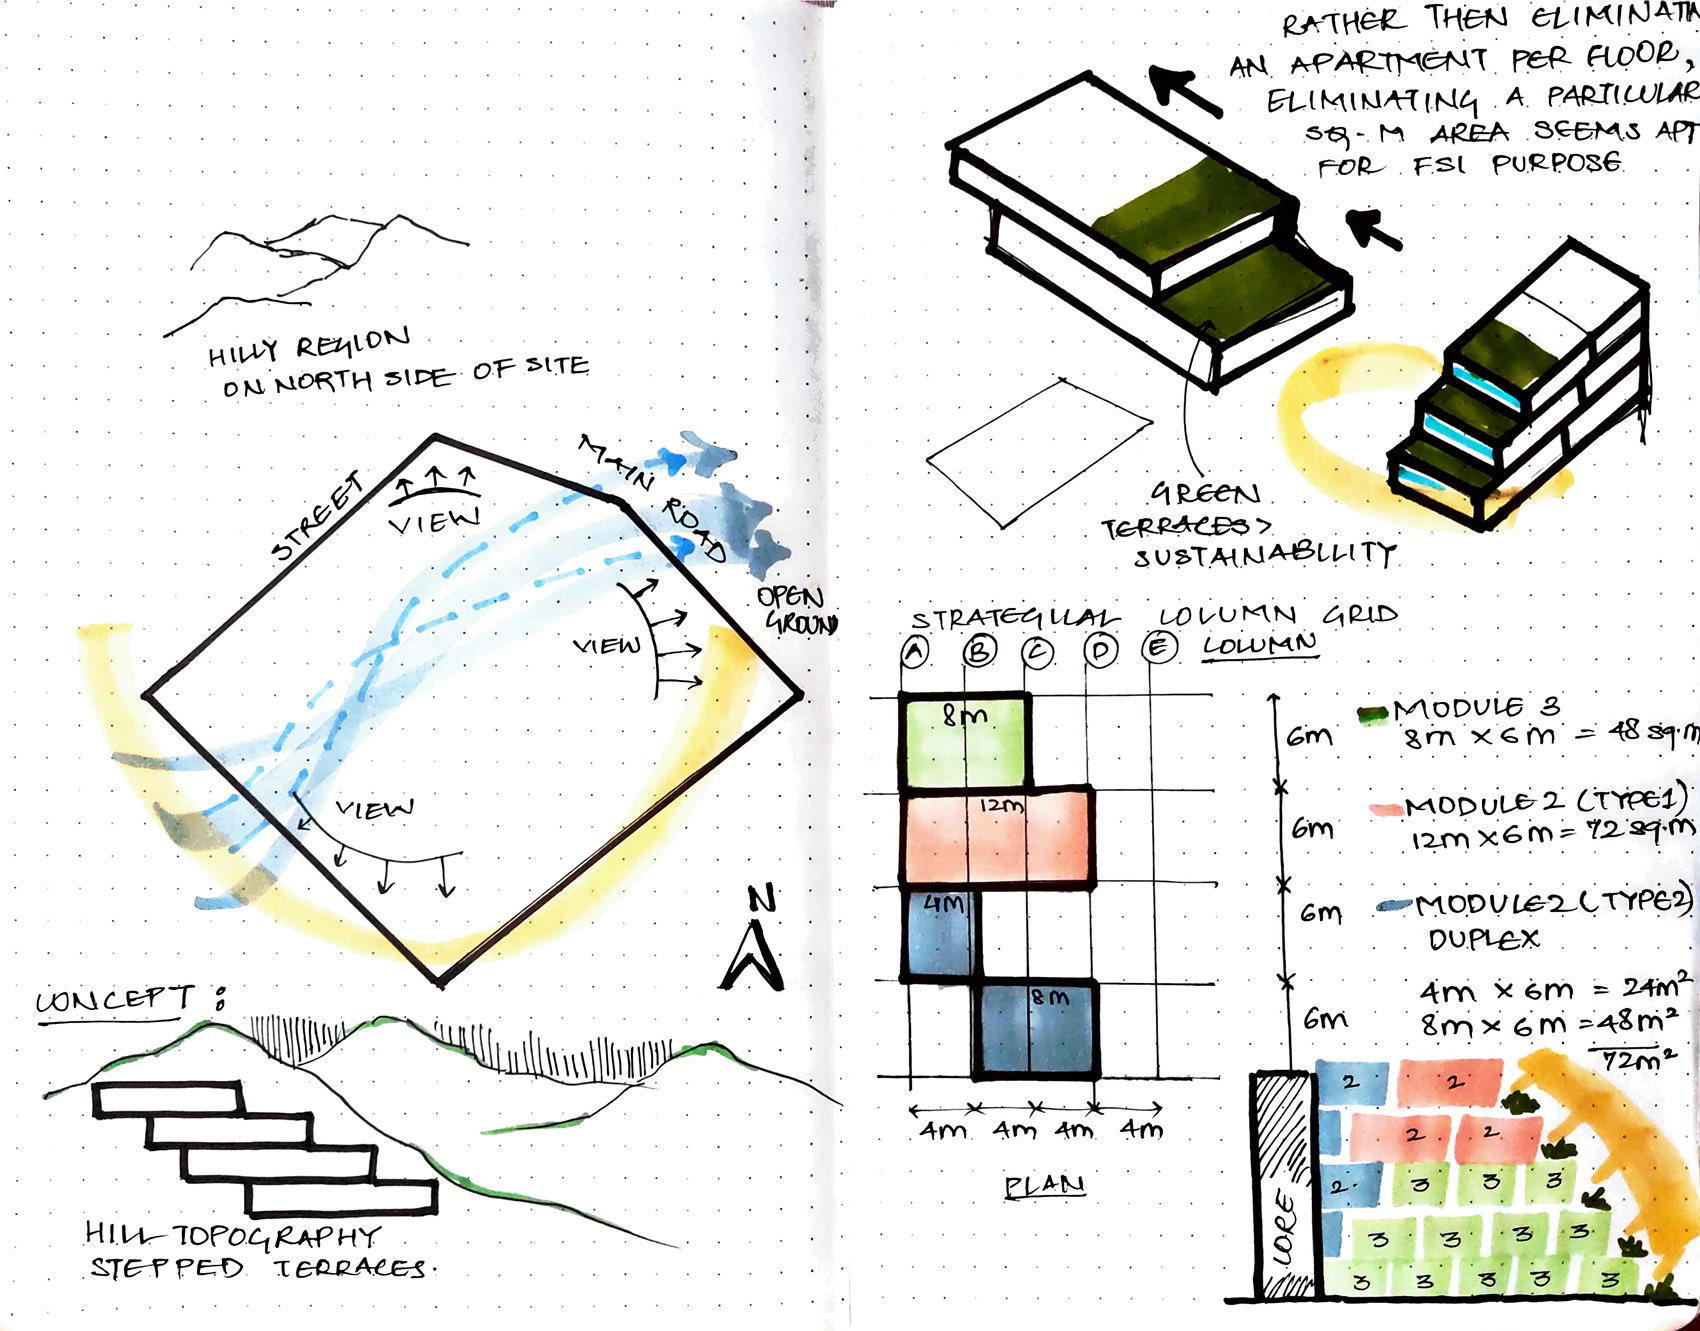 HILLY REGION
ON NORTH SIDE OF SITE
STREET
VIEW
MAIN
ROAD
OPEN
GROUND
VIEW
VIEW
N
CONCEPT :
HILL TOPOGRAPHY
STEPPED TERRACES.
RATHER THEN ELIMINATIN
AN APARTMENT PER FLOOR,
ELIMINATING A PARTICULAR
SQ-M AREA SEEMS APT
FOR FSI PURPOSE
GREEN
TERRACES>
SUSTAINABILITY
STRATEGICAL COLUMN GRID
A B C D E COLUMN
8m
12m
4m
8m
6m
6m
6m
6m
4m 4m 4m 4m
PLAN
MODULE 3
8m x 6m = 48 sq.m
MODULE 2 (TYPE1)
12m x 6m = 72 sq.m
MODULE 2 (TYPE2)
DUPLEX
4m x 6m = 24m²
8m x 6m = 48m²
72m²
CORE
2 2
2 2
2 3 3 3
3 3 3 3
3 3 3 3 3